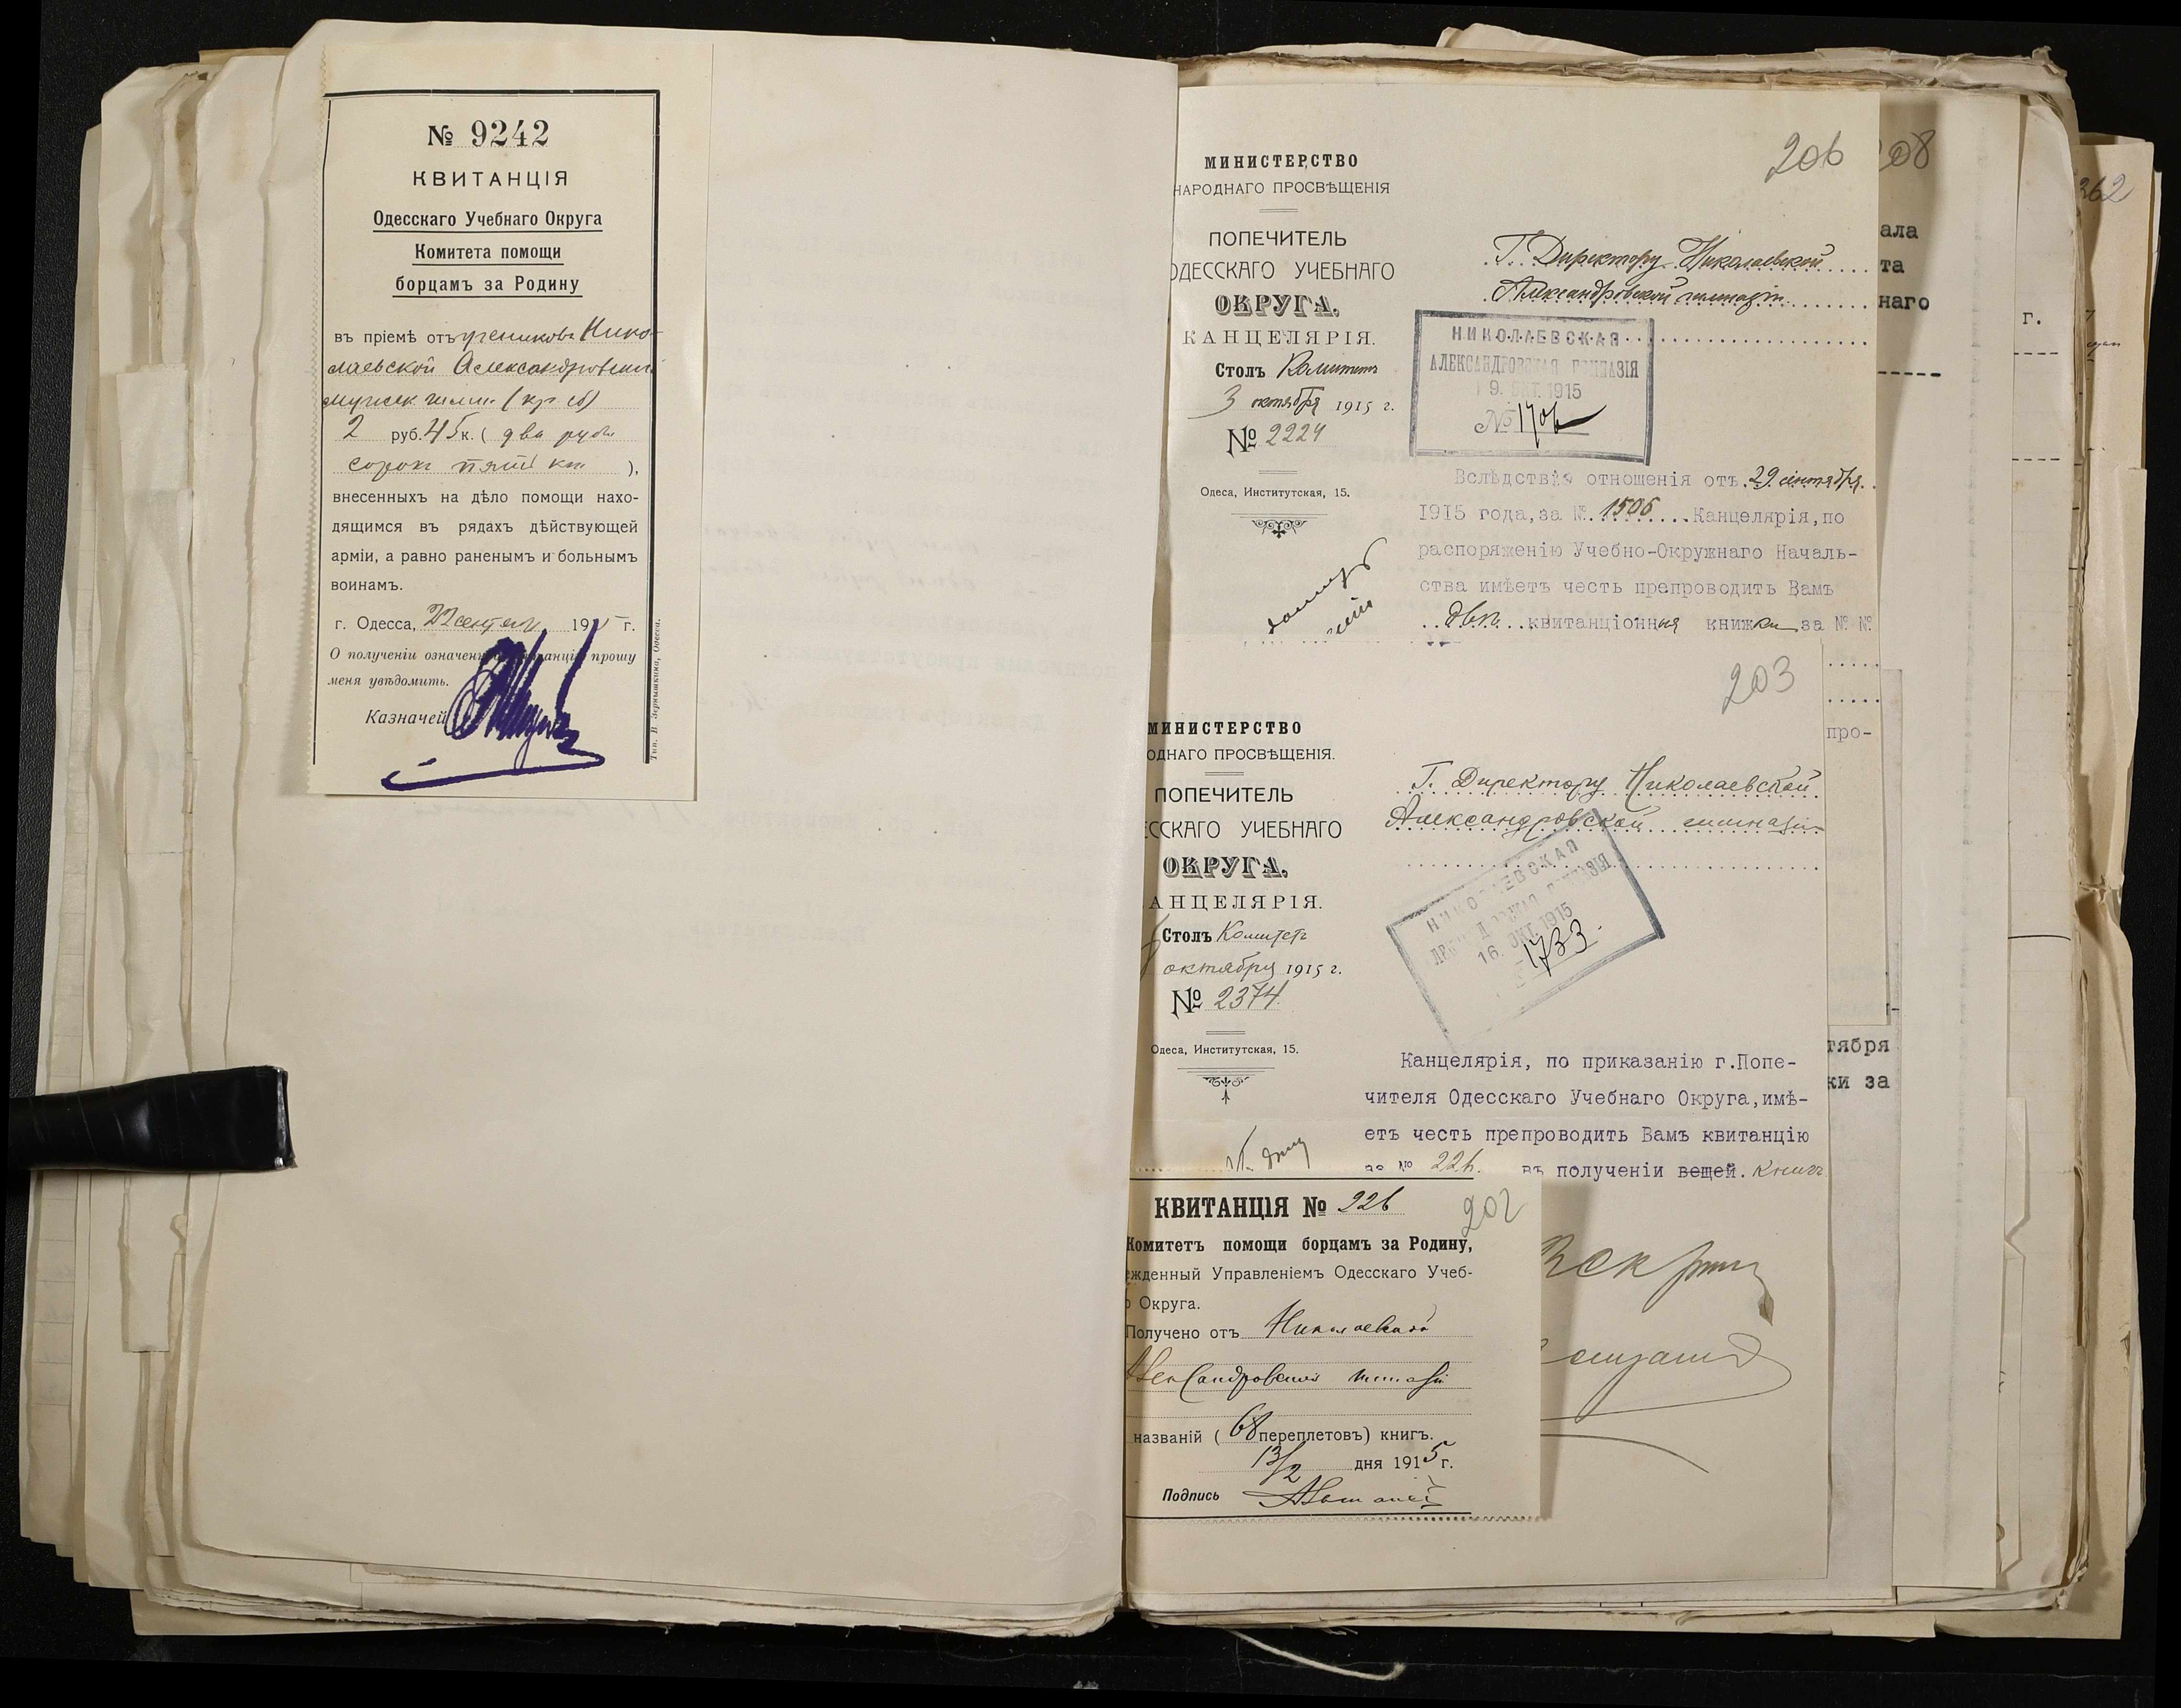 № 9242
КВИТАНЦІЯ
Одесскаго Учебнаго Округа
Комитета помощи
борцамъ за Родину
въ пріемѣ отъ учениковъ Нико-
лаевской Александровской
мужск. гимн. (кр сб)
2 руб. 45 к. ( два рубл
сорок пять коп ),
внесенныхъ на дѣло помощи нахо-
дящимся въ рядахъ дѣйствующей
арміи, а равно раненымъ и больнымъ
воинамъ.
г. Одесса, 22 сентяб 1915 г.
О получении означен анціи прошу
меня увѣдомить.
Казначей
Тип. В Зернышкина, Одесса.
206
208
362
МИНИСТЕРСТВО
НАРОДНАГО ПРОСВѢЩЕНІЯ
ПОПЕЧИТЕЛЬ
ОДЕССКАГО УЧЕБНАГО
ОКРУГА.
КАНЦЕЛЯРІЯ.
Столъ Комитет
3 октября 1915 г.
№ 2224
Одеса, Институтская, 15.
Г. Директору Николаевской
Александровской гимназіи
НИКОЛАЕВСКАЯ
АЛЕКСАНДРОВСКАЯ ГИМНАЗІЯ
9. ОКТ. 1915
№ 1706
Вслѣдствіе отношенія отъ 29 сентября
1915 года, за № 1506 Канцелярія, по
распоряженію Учебно-Окружнаго Началь-
ства имѣетъ честь препроводить Вамъ
двѣ квитанціонныя книжки за № №
ала
та
наго
г.
про-
тября
ки за
203
МИНИСТЕРСТВО
ОДНАГО ПРОСВѢЩЕНІЯ.
ПОПЕЧИТЕЛЬ
ЕССКАГО УЧЕБНАГО
ОКРУГА.
АНЦЕЛЯРІЯ.
Столъ Комитетъ
октября 1915 г.
№ 2374.
Одеса, Институтская, 15.
Г. Директору Николаевской
Александровской гимназіи
НИКОЛАЕВСКАЯ
16. ОКТ. 1915
1733
Канцелярія, по приказанію г.Попе-
чителя Одесскаго Учебнаго Округа, имѣ-
етъ честь препроводить Вамъ квитанцію
за № 226. въ полученіи вещей. книгъ
КВИТАНЦІЯ № 226
202
Комитетъ помощи борцамъ за Родину,
ежденный Управленіемъ Одесскаго Учеб-
о Округа.
Получено отъ Николаевской
Александровской гимназіи
названій ( 68 переплетовъ) книгъ.
13/2 дня 1915 г.
Подпись